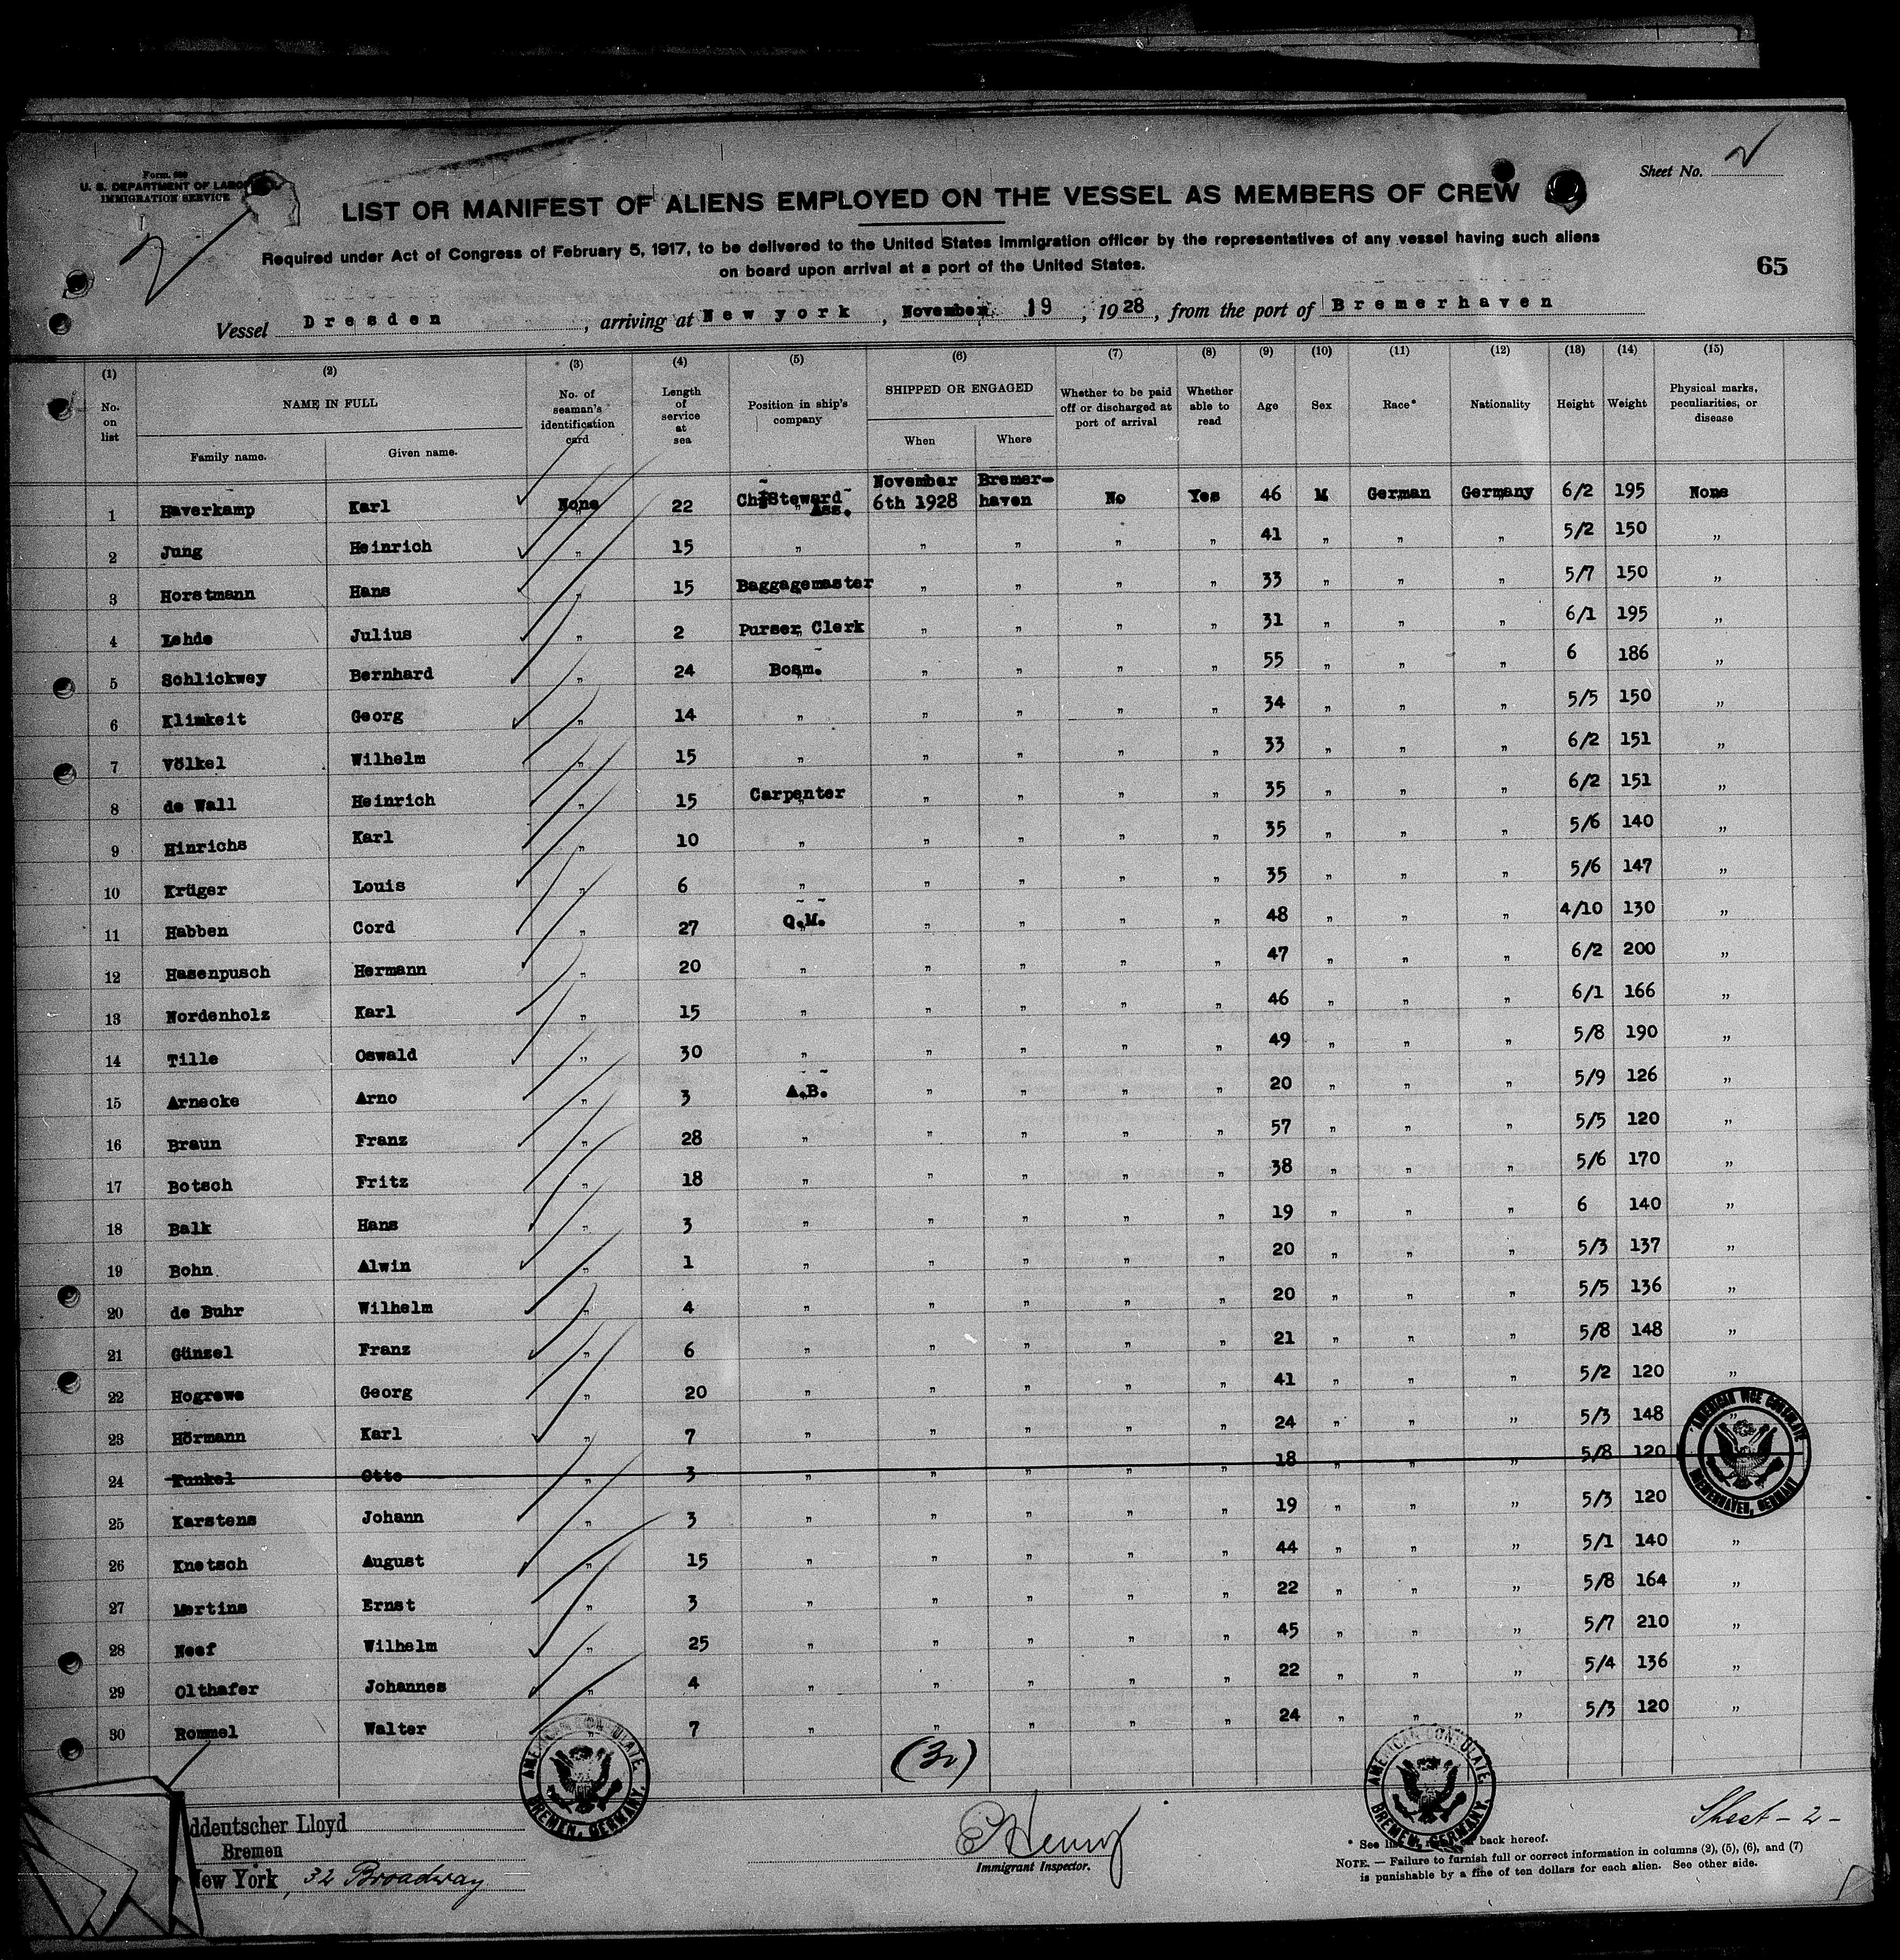 Sheet No. 2
Form 689
U. S. DEPARTMENT OF LABOR
IMMIGRATION SERVICE
2
LIST OR MANIFEST OF ALIENS EMPLOYED ON THE VESSEL AS MEMBERS OF CREW
Required under Act of Congress of February 5, 1917, to be delivered to the United States immigration officer by the representatives of any vessel having such aliens
on board upon arrival at a port of the United States.
65
Vessel Dresden, arriving at New york, November 19, 1928, from the port of Bremerhaven
(1) (2) (3) (4) (5) (6) (7) (8) (9) (10) (11) (12) (13) (14) (15)
No. on list NAME IN FULL Family name. Given name. No. of seaman's identification card Length of service at sea Position in ship's company SHIPPED OR ENGAGED When Where Whether to be paid off or discharged at port of arrival Whether able to read Age Sex Race* Nationality Height Weight Physical marks, peculiarities, or disease
1 Haverkamp Karl None 22 Chf Steward Ass. November 6th 1928 Bremer-haven No Yes 46 M German Germany 6/2 195 None
2 Jung Heinrich " 15 " " " " " 41 " " " 5/2 150 "
3 Horstmann Hans " 15 Baggagemaster " " " " 33 " " " 5/7 150 "
4 Lehde Julius " 2 Purser Clerk " " " " 31 " " " 6/1 195 "
5 Schlickwey Bernhard " 24 Bosm. " " " " 55 " " " 6 186 "
6 Klimkeit Georg " 14 " " " " " 34 " " " 5/5 150 "
7 Völkel Wilhelm " 15 " " " " " 33 " " " 6/2 151 "
8 de Wall Heinrich " 15 Carpenter " " " " 35 " " " 6/2 151 "
9 Hinrichs Karl " 10 " " " " " 35 " " " 5/6 140 "
10 Krüger Louis " 6 " " " " " 35 " " " 5/6 147 "
11 Habben Cord " 27 Q.M. " " " " 48 " " " 4/10 130 "
12 Hasenpusch Hermann " 20 " " " " " 47 " " " 6/2 200 "
13 Nordenholz Karl " 15 " " " " " 46 " " " 6/1 166 "
14 Tille Oswald " 30 " " " " " 49 " " " 5/8 190 "
15 Arnecke Arno " 3 A.B. " " " " 20 " " " 5/9 126 "
16 Braun Franz " 28 " " " " " 57 " " " 5/5 120 "
17 Botsch Fritz " 18 " " " " " 38 " " " 5/6 170 "
18 Balk Hans " 3 " " " " " 19 " " " 6 140 "
19 Bohn Alwin " 1 " " " " " 20 " " " 5/3 137 "
20 de Buhr Wilhelm " 4 " " " " " 20 " " " 5/5 136 "
21 Günzel Franz " 6 " " " " " 21 " " " 5/8 148 "
22 Hogrewe Georg " 20 " " " " " 41 " " " 5/2 120 "
23 Hörmann Karl " 7 " " " " " 24 " " " 5/3 148 "
24 Kunkel Otto " 3 " " " " " 18 " " " 5/8 120
25 Karstens Johann " 3 " " " " " 19 " " " 5/3 120
26 Knetsch August " 15 " " " " " 44 " " " 5/1 140 "
27 Mertins Ernst " 3 " " " " " 22 " " " 5/8 164 "
28 Neef Wilhelm " 25 " " " " " 45 " " " 5/7 210 "
29 Olthafer Johannes " 4 " " " " " 22 " " " 5/4 136 "
30 Rommel Walter " 7 " " " " " 24 " " " 5/3 120 "
AMERICAN VICE CONSULATE
BREMERHAVEN, GERMANY
(30)
AMERICAN CONSULATE
BREMEN, GERMANY.
AMERICAN CONSULATE
BREMEN, GERMANY.
Sheet - 2 -
ddeutscher Lloyd
Bremen
New York, 32 Broadway
Immigrant Inspector.
* See back hereof.
NOTE. — Failure to furnish full or correct information in columns (2), (5), (6), and (7)
is punishable by a fine of ten dollars for each alien. See other side.